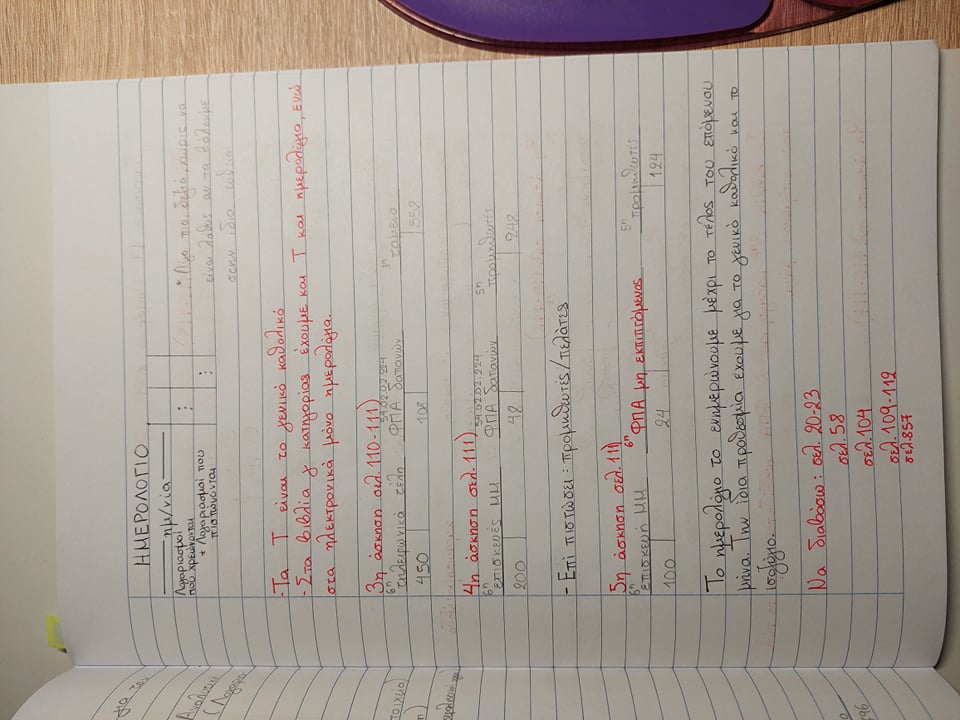 για τον
Αναλυτικ
(Λογαρια
ΗΜΕΡΟΛΟΓΙΟ
ημ/νία
Λογαριασμοί
που χρεώνονται
* Λογαριασμοί που
πιστώνονται
* Λίγο πιο δεξιά, χωρίς να
είναι λάθος αν τα βάλουμε
στην ίδια ευθεία
-Τα Τ είναι το γενικό καθολικό
-Στα βιβλία γ κατηγορίας έχουμε και Τ και ημερολόγια, ενώ
στα ηλεκτρονικά μόνο ημερολόγια.
3η άσκηση σελ. 110-111)
6η τηλεφωνικά τέλη 54.02.02.224 ΦΠΑ δαπανών 3η ταμείο
450 108 558
4η άσκηση σελ. 111)
6η επισκευές ΜΜ 54.02.02.224 ΦΠΑ δαπανών 5η προμηθευτές
200 48 248
- Επί πιστώσει: προμηθυτές/πελάτες
5η άσκηση σελ. 111)
6η επισκευή ΜΜ 6η ΦΠΑ μη εκπιπτόμενος 5η προμηθευτές
100 24 124
Το ημερολόγιο το ενημερώνουμε μέχρι το τέλος του επόμενου
μήνα. Την ίδια προθεσμία έχουμε για το γενικό καθολικό και το
ισοζύγιο.
Να διαβάσω: σελ. 20-23
σελ. 58
σελ. 104
σελ. 109-112
σελ. 857